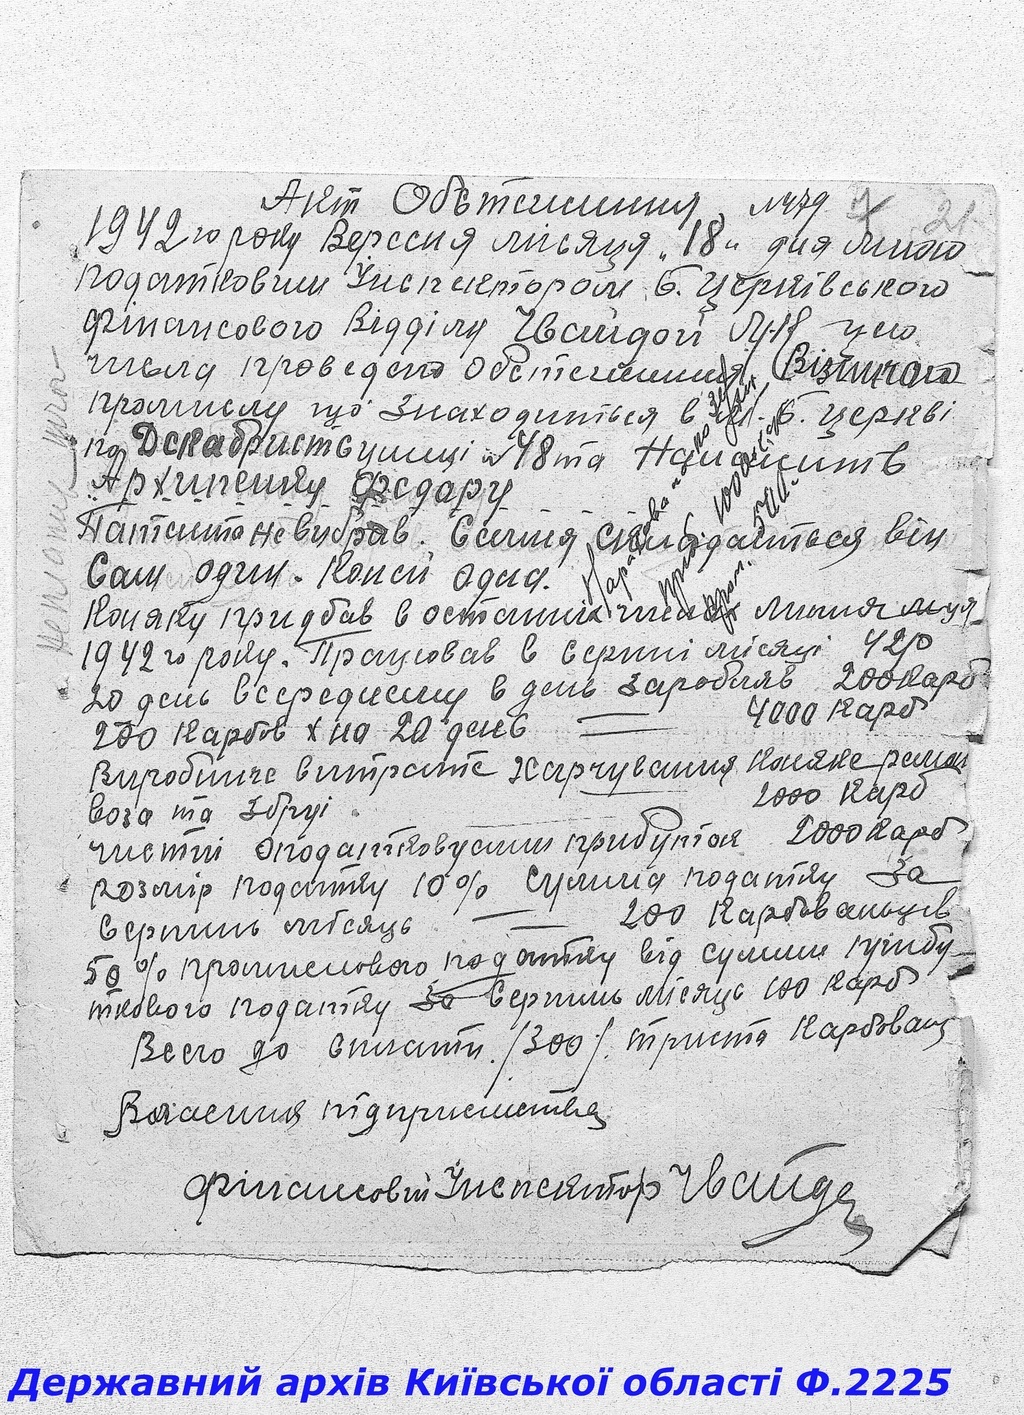 Акт Обстеження №479 7 21
1942 го року Вересня місяця „18“ дня мною
податковим Інспектором Б. Церківського
фінансового Відділу Чвайдой цею
числа проведено обстеження Візничого
промислу що знаходиться в м. Б. Церкві
по Декабристів улиці №48 та Належить
Архипенку Федору
Патента не вибрав. Семия складається він
Сам один. Коней один.
Коняку придбав в останніх числах липня м-ця
1942 го року. Працював в серпні місяці 420
20 день всередньому в день заробляв 200 Карб
200 Карбов х на 20 днев 4000 Карб
Виробниче витрате Харчування Коняке ремон
воза та збруі 2000 Карб
чистий оподатковуемий прибуток 2000 Карб
розмір податку 10% сумма податку за
Серпень місяць 200 Карбованців
50% промислового податку від сумми прибу-
ткового податку за Серпень місяць 100 Карб
Всего до сплати /300/. триста Карбованц
Власник підприємства
фінансовий Інспектор Чвайда
Державний архів Київської області Ф.2225